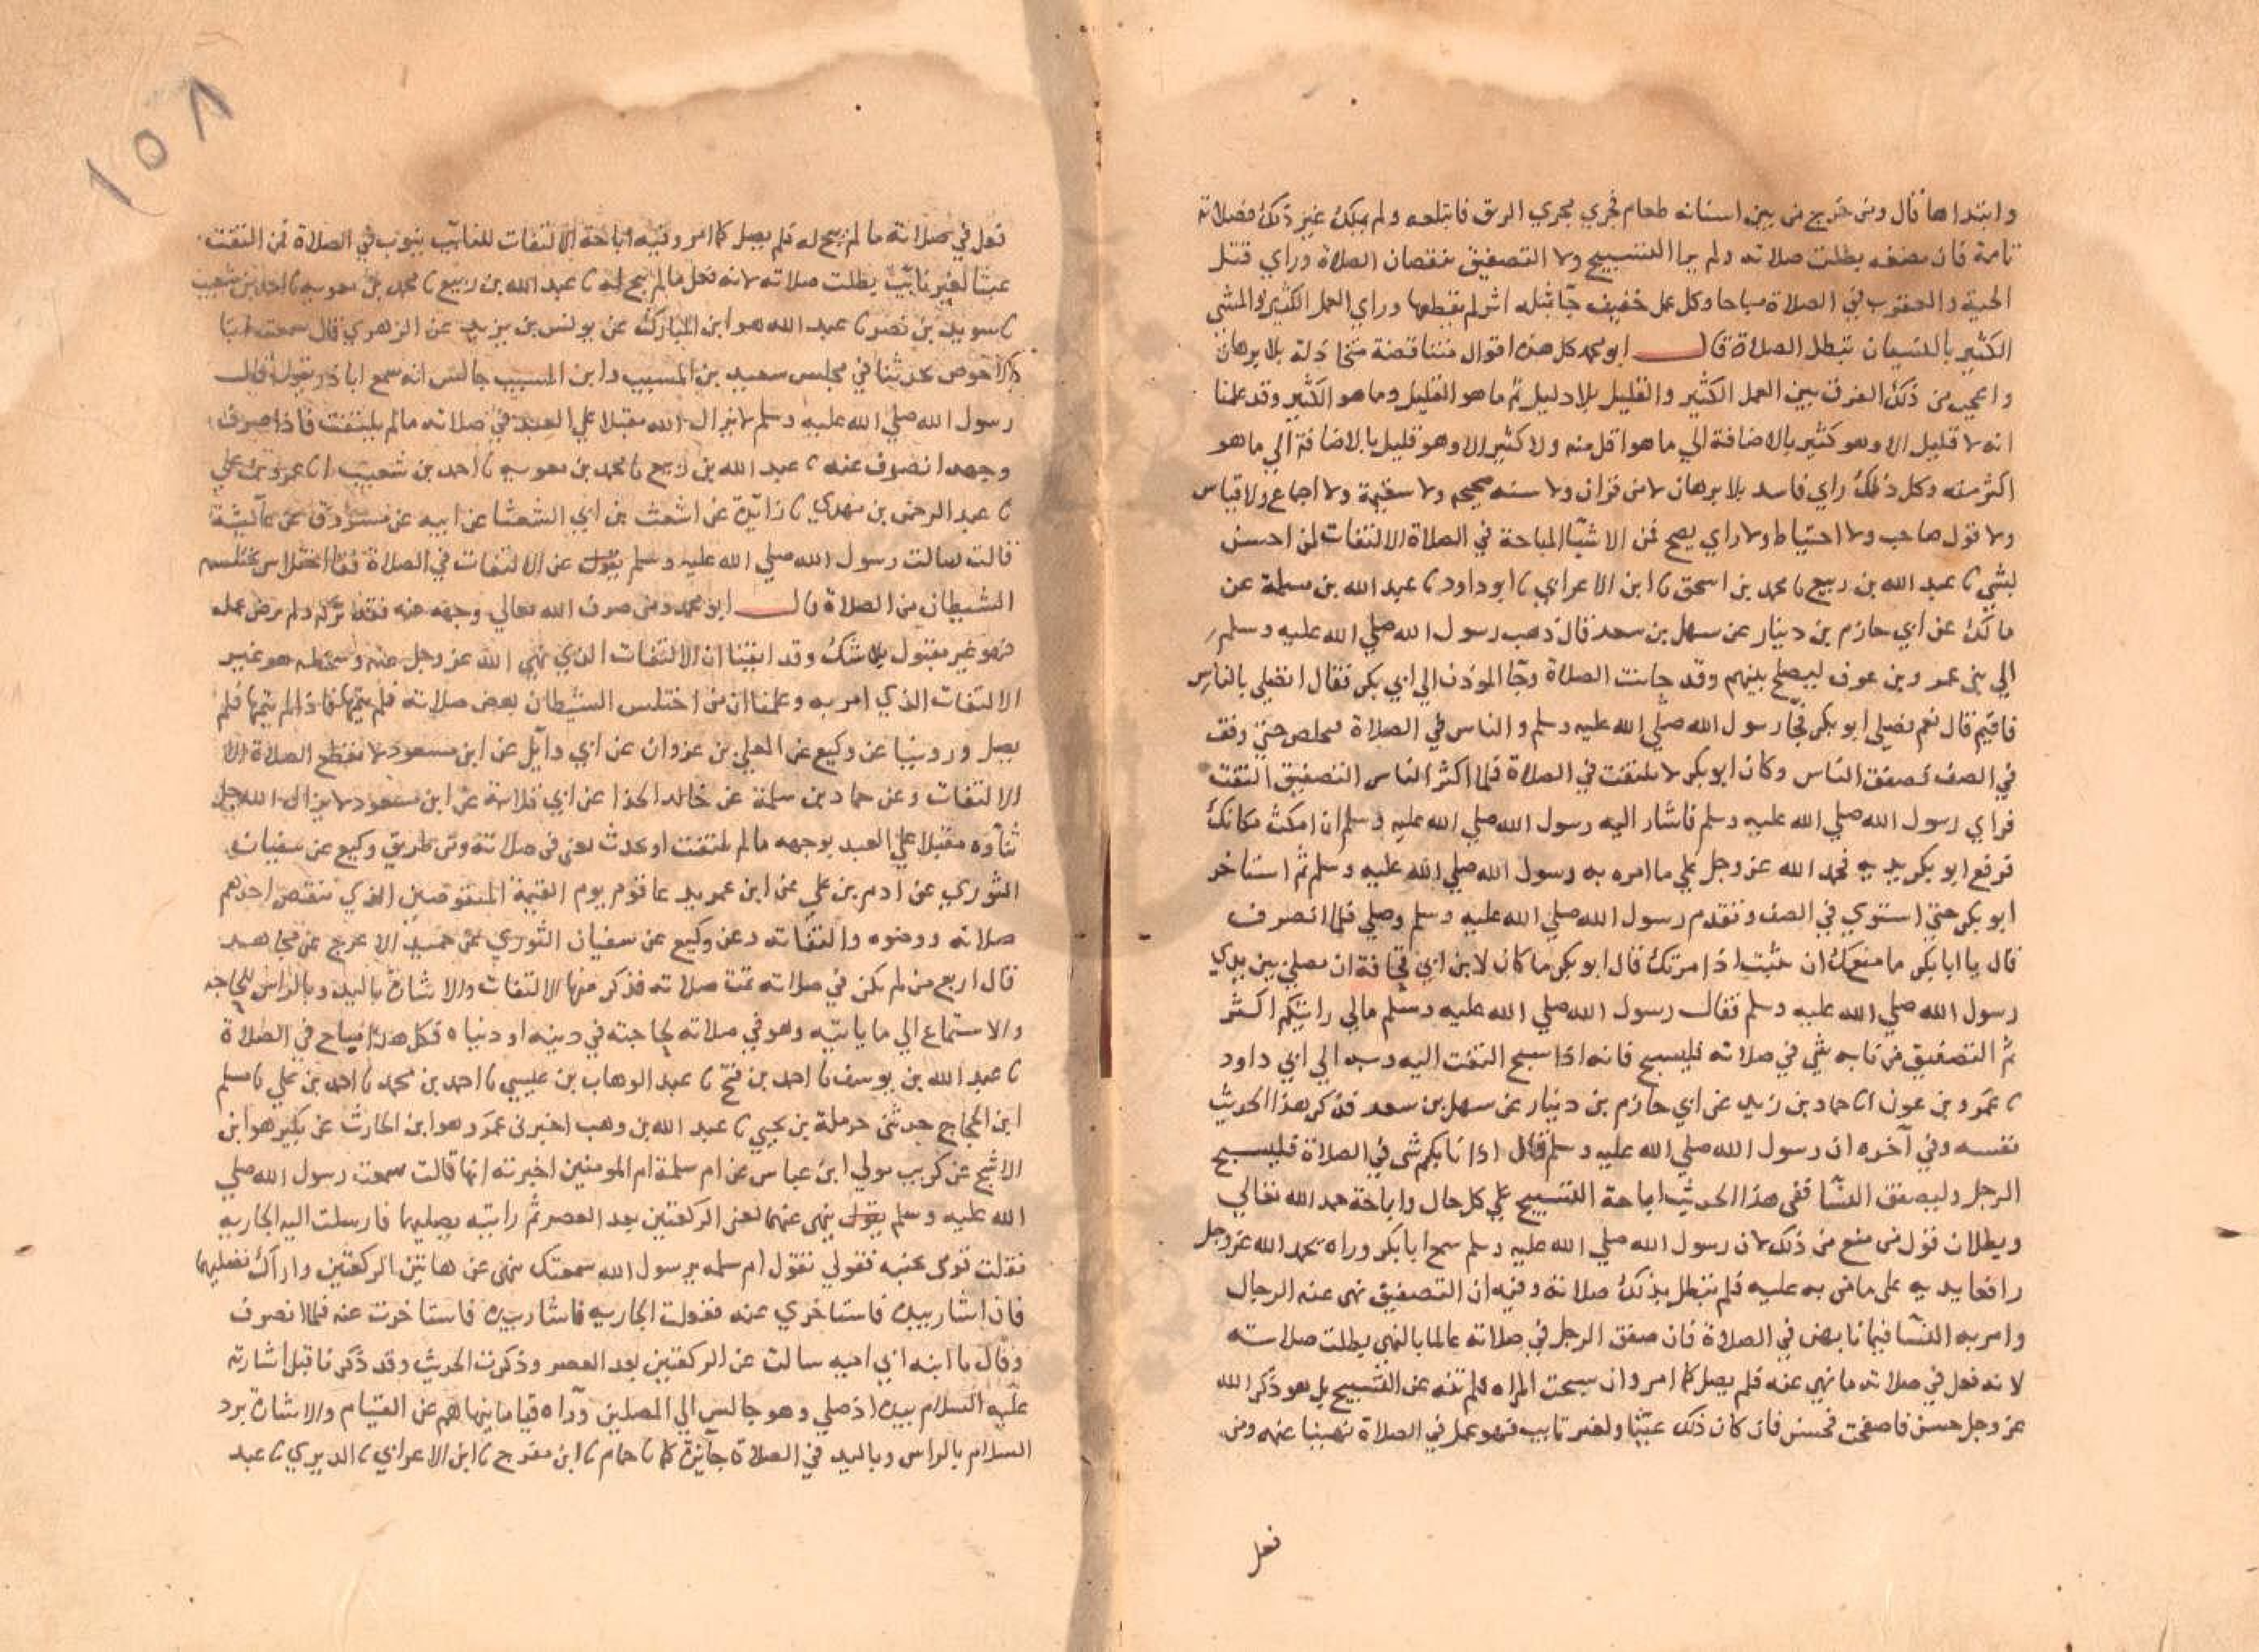 وابتداها قال ومن خرج من بين اسنانه طعام فجري مجري الريق فابتلعه ولم يملك غير ذلك فصلاته
تامة فان مضغه بطلت صلاته ولم يرا التسبيح ولا التصفيق ينقصان الصلاة وراي قتل
الحية والعقرب في الصلاة مباحا وكل عمل خفيف جا مثله اثر لم يقطعها وراي العمل الكثير والمشي
الكثير بالنسيان تبطل الصلاة قال ابو محمد كل هذه اقوال متناقضة متخاذلة بلا برهان
واعجب من ذلك الفرق بين العمل الكثير والقليل بلا دليل ثم ما هو القليل وما هو الكثير وقد علمنا
انه لا قليل الا وهو كثير بالاضافة الي ما هو اقل منه ولا كثير الا وهو قليل بالاضافة الي ما هو
اكثر منه وكل ذلك راي فاسد بلا برهان لا من قران ولا سنه صحيحه ولا سقيمة ولا اجماع ولا قياس
ولا قول صاحب ولا احتياط ولا راي يصح فمن الاشيا المباحة في الصلاة الالتفات لمن احسن
بشي نا عبد الله بن ربيع نا محمد بن اسحق نا ابن الاعرابي نا ابو داود نا عبد الله بن مسلمة عن
مالك عن ابي حازم بن دينار عن سهل بن سعد قال ذهب رسول الله صلي الله عليه وسلم
الي بني عمرو بن عوف ليصلح بينهم وقد حانت الصلاة وجا الموذن الي ابي بكر فقال اتصلي بالناس
فاقيم قال نعم فصلي ابو بكر فجا رسول الله صلي الله عليه وسلم والناس في الصلاة فتخلص حتي وقف
في الصف فصفق الناس وكان ابو بكر لا يلتفت في الصلاة فلما اكثر الناس التصفيق التفت
فراي رسول الله صلي الله عليه وسلم فاشار اليه رسول الله صلي الله عليه وسلم ان امكث مكانك
فرفع ابو بكر يديه فحمد الله عز وجل علي ما امره به رسول الله صلي الله عليه وسلم ثم استاخر
ابو بكر حتي استوي في الصف وتقدم رسول الله صلي الله عليه وسلم وصلي فلما انصرف
قال يا ابا بكر ما منعك ان تثبت اذ امرتك قال ابو بكر ما كان لابن ابي قحافة ان يصلي بين يدي
رسول الله صلي الله عليه وسلم فقال رسول الله صلي الله عليه وسلم مالي رايتكم اكثر
ثم التصفيق من نابه شي في صلاته فليسبح فانه اذا سبح التفت اليه وبه الي ابي داود
نا عمرو بن عون انا حماد بن زيد عن ابي حازم بن دينار عن سهل بن سعد فذكر هذا الحديث
نفسه وفي آخره ان رسول الله صلي الله عليه وسلم قال اذا نابكم شي في الصلاة فليسبح
الرجل وليصفق النسا ففي هذا الحديث اباحة التسبيح علي كل حال واباحة حمد الله تعالي
وبطلان قول من منع من ذلك لان رسول الله صلي الله عليه وسلم سمع ابا بكر وراه يحمد الله عز وجل
رافعا يديه على ما من به عليه فلم تبطل بذلك صلاته وفيه ان التصفيق نهى عنه الرجال
وامر به النسا فيما نابهن في الصلاة فان صفق الرجل في صلاته عالما بالنهي بطلت صلاته
لانه فعل في صلاته ما نهي عنه فلم يصل كما امر وان سبحت المراه فلم تنه عن التسبيح بل هو ذكر الله
عز وجل حسن فان صفحت فحسن فان كان ذلك عبثا ولغير نايب فهو عمل في الصلاة نهينا عنه ومن
فعل
١٥٨
فعل في صلاته ما لم يبح له فلم يصل كما امر وفيه اباحة الالتفات للنائب ينوب في الصلاة فمن التفت
عبثا لغير نائب بطلت صلاته لانه فعل ما لم يبح له نا عبد الله بن ربيع نا محمد بن معوية نا احمد بن شعيب
نا سويد بن نصر نا عبد الله هو ابن المبارك عن يونس بن يزيد عن الزهري قال سمعت ابا
الاحوص يحدثنا في مجلس سعيد بن المسيب وابن المسيب جالس انه سمع ابا ذر يقول قال
رسول الله صلي الله عليه وسلم لا يزال الله مقبلا علي العبد في صلاته ما لم يلتفت فاذا صرف
وجهه انصرف عنه نا عبد الله بن ربيع نا محمد بن معوية نا احمد بن شعيب انا عمرو بن علي
نا عبد الرحمن بن مهدي نا زائدة عن اشعث بن ابي الشعثا عن ابيه عن مسروق عن عائشة
قالت سالت رسول الله صلي الله عليه وسلم يقول عن الالتفات في الصلاة فقال اختلاس يختلسه
الشيطان من الصلاة قال ابو محمد ومن صرف الله تعالي وجهه عنه فقد تركه ولم يرض عمله
فهو غير مقبول بلا شك وقد ايقنا ان الالتفات الذي نهي الله عز وجل عنه وسخطه هو غير
الالتفات الذي امر به وعلمنا ان من اختلس الشيطان بعض صلاته فلم يتمها فاذا لم يتمها فلم
يصل وروينا عن وكيع عن المعلي بن عزوان عن ابي وائل عن ابن مسعود لا يقطع الصلاة الا
الالتفات وعن حماد بن سلمة عن خالد الحذا عن ابي قلابة عن ابن مسعود لا يزال الله جل
ثناؤه مقبلا علي العبد بوجهه ما لم يلتفت او يحدث يعني في صلاته ومن طريق وكيع عن سفيان
الثوري عن ادم بن علي عن ابن عمر يدعا قوم يوم القيمة المنقوصين الذي ينقص احدهم
صلاته ووضوه والتفاته وعن وكيع عن سفيان الثوري عن حميد الاعرج عن مجاهد
قال اربع من لم يكن في صلاته تمت صلاته فذكر منها الالتفات والاشارة باليد وبالراس للحاجة
والاستماع الي ما ياتيه وهو في صلاته لحاجته في دينه او دنياه فكل هذا مباح في الصلاة
نا عبد الله بن يوسف نا احمد بن فتح نا عبد الوهاب بن عيسي نا احمد بن محمد نا احمد بن علي نا مسلم
ابن الحجاج حدثني حرملة بن يحيي نا عبد الله بن وهب اخبرني عمرو هو ابن الحارث عن بكير هو ابن
الاشج عن كريب مولي ابن عباس عن ام سلمة ام المومنين اخبرته انها قالت سمعت رسول الله صلي
الله عليه وسلم يقول ينهى عنهما يعني الركعتين بعد العصر ثم رايته يصليهما فارسلت اليه الجاريه
فقلت قومى بجنبه فقولي تقول ام سلمه يرسول الله سمعتك تنهى عن هاتين الركعتين واراك تصليهما
فان اشار بيده فاستاخري عنه ففعلت الجاريه فاشار بيده فاستاخرت عنه فلما انصرف
وقال يا ابنه ابي اميه سالت عن الركعتين بعد العصر وذكرت الحديث وقد ذكرنا قبل اشارته
عليه السلام بيده اذ صلي وهو جالس الي المصلين وراه قياما ينهاهم عن القيام والاشارة برد
السلام بالراس وباليد في الصلاة جائزة كما نا حمام نا ابن مفرج نا ابن الاعرابي نا الدبري نا عبد